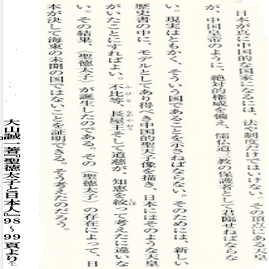 日本が真に中国的な国家になるには、法や制度だけではいけない。その頂点にある天皇
が、中国皇帝のように、絶対的権威を備え、儒仏道三教の保護者として君臨せねばならな
い。現実はともかく、そういう国であることを示さねばならない。そのためには、新しい
歴史書の中に、モデルとしてあり得べき中国的聖天子像を描き、日本にはこのような天皇
がいたことにすればよい。不比等、長屋王そして道慈が、知恵を絞って考えたに違いな
い。その結果、〈聖徳太子〉が誕生したのである。その〈聖徳太子〉の存在によって、日
本が決して海東の未開の国ではないことを証明できる。そう考えたのだろう。
大山誠一著『聖徳太子と日本人』98～99頁より